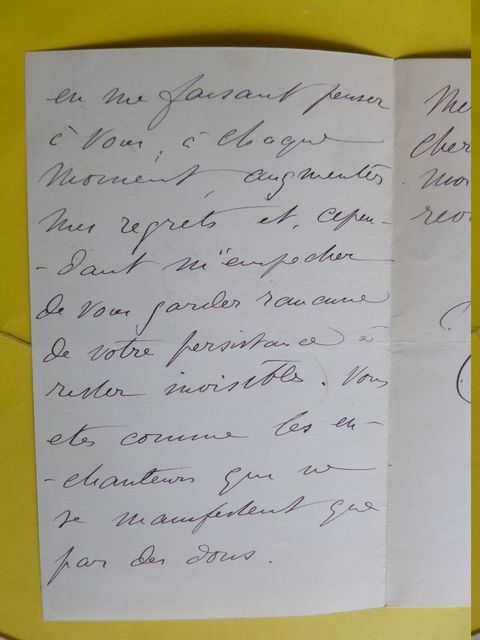 en me faisant penser
à vous, à chaque
moment, augmenter
mes regrets et, cepen-
-dant m'empêcher
de vous garder rancune
de votre persistance à
rester invisible. Vous
etes comme les en-
-chanteurs qui ne
se manifestent que
par des dons.
Me
cher
mo
revo